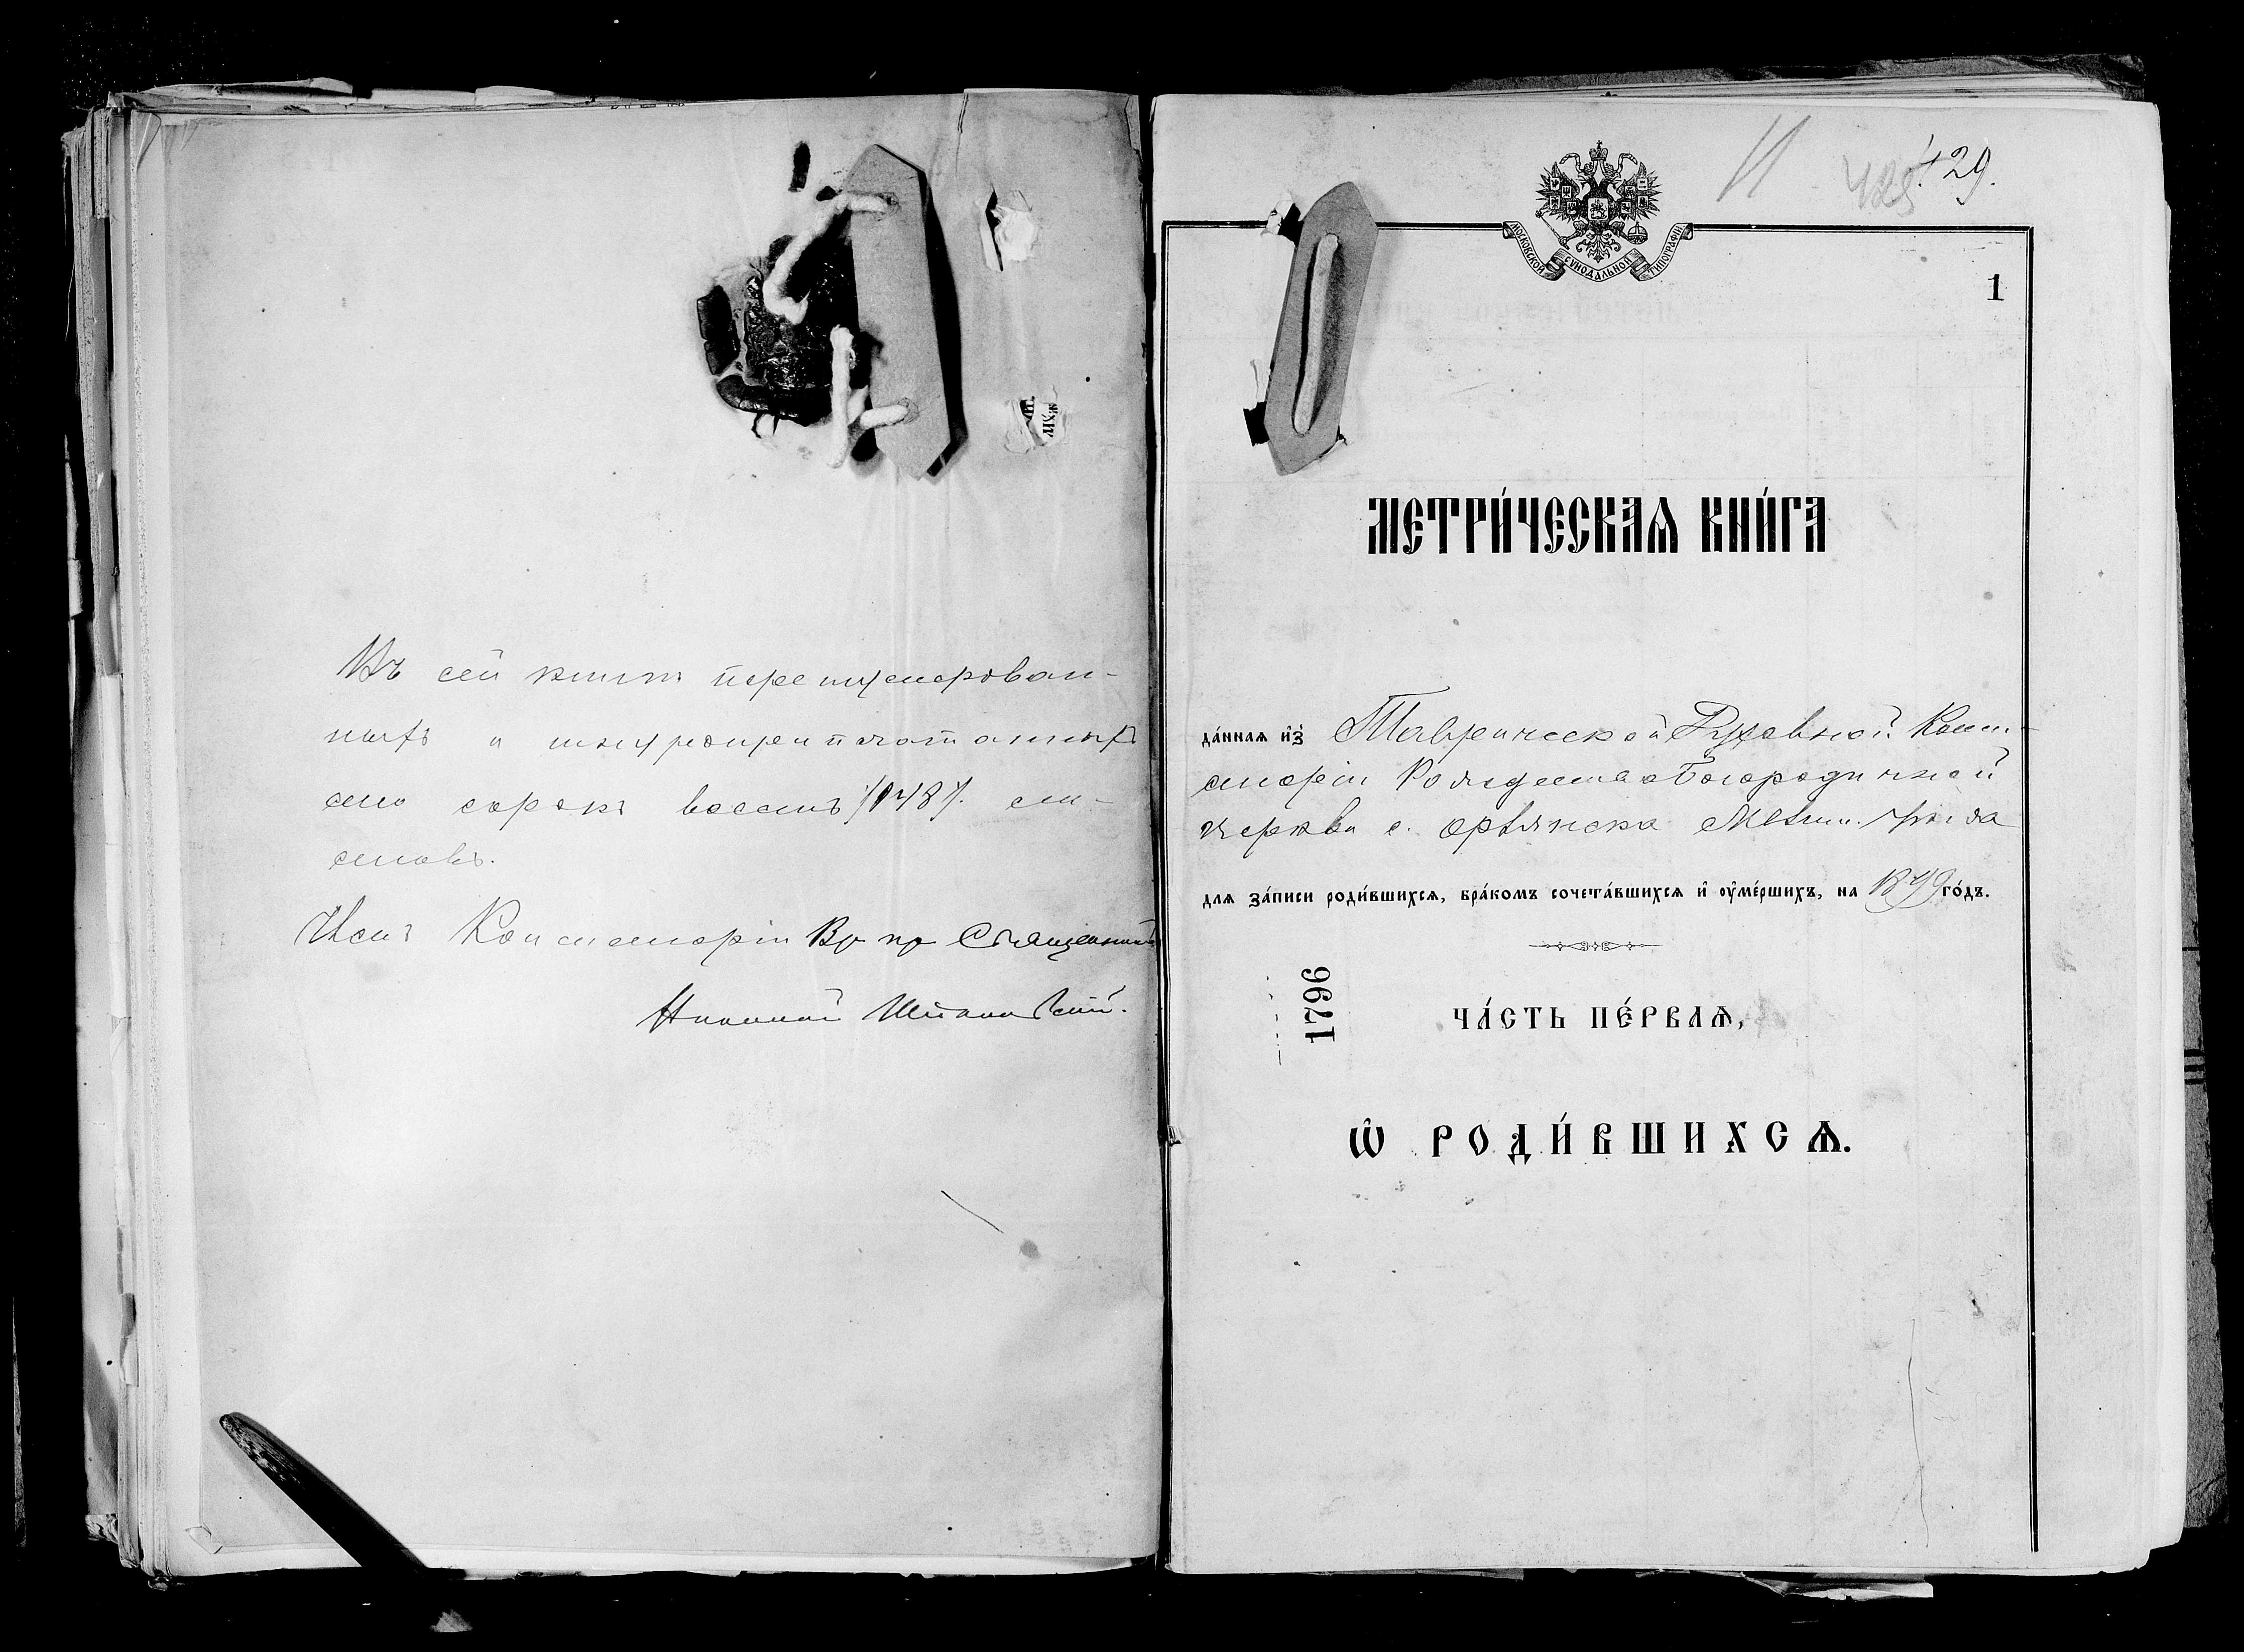 Въ сей книгѣ перенумерован-
ныхъ и шнуропрепечатанныхъ
сто сорокъ восемь /148/. ли-
стовъ.
Членъ Консисторіи Вр пр Священникъ
Николай
429.
МОСКОВСКОЙ СѴНОДАЛЬНОЙ ТИПОГРАФІИ
1
МЕТРИ́ЧЕСКАѦ КНИ́ГА
да́нная и҆з̾ Таврической Духовной Конси-
сторіи Рождество Богородичной
церкви с. Орѣлнска Мелит. уѣзда
для за́писи роди́вшихся, бра́комъ сочета́вшихся и҆ оу҆ме́ршихъ, на 1899 го́дъ.
1796
ЧА́СТЬ ПЕ́РВАѦ,
Ѡ҆ РОДИ́ВШИХСѦ.